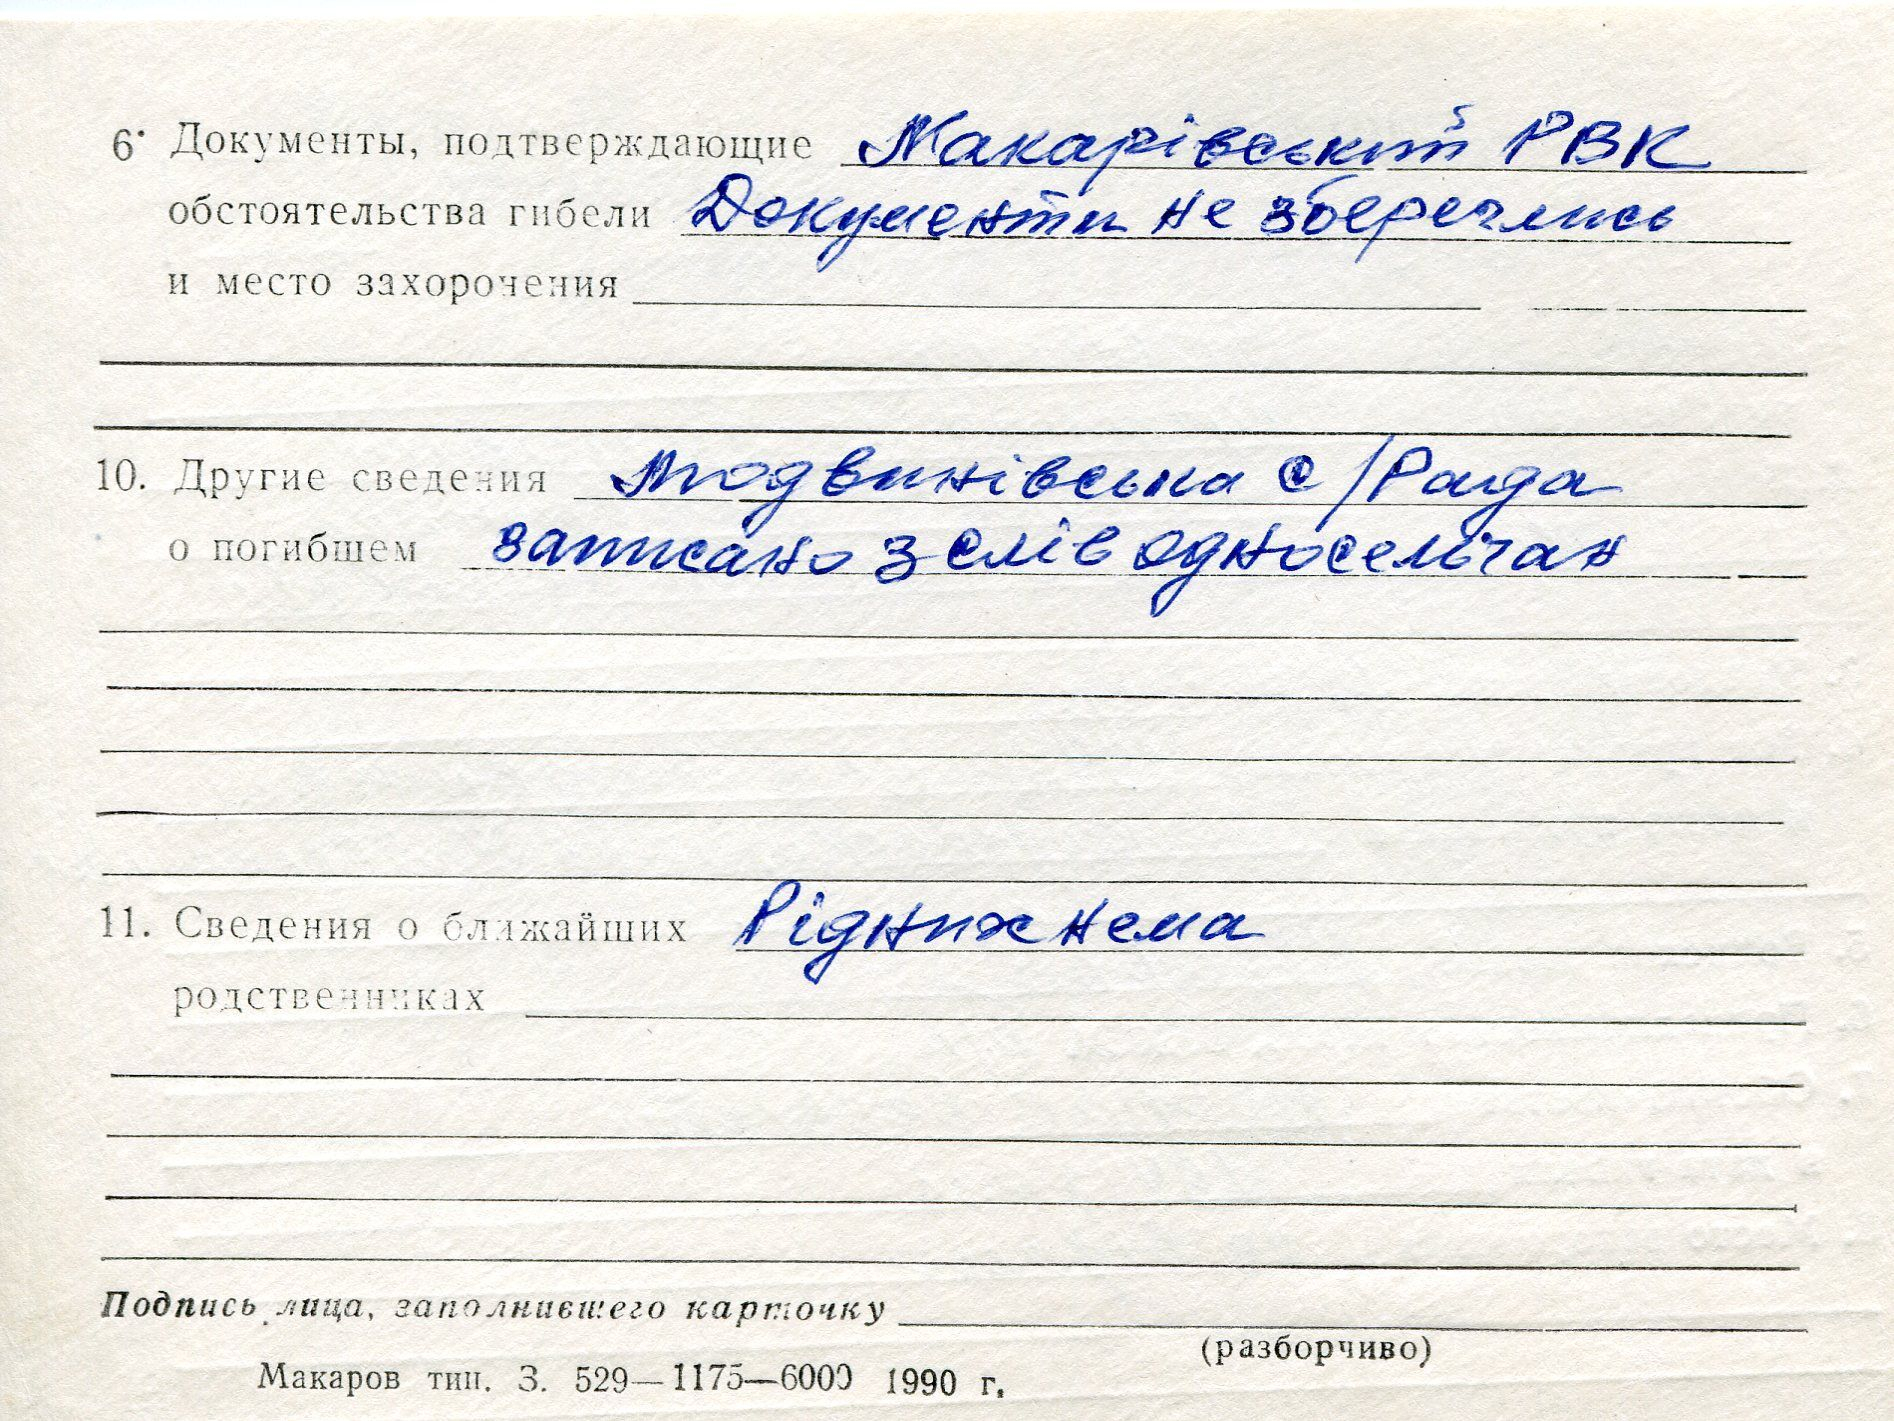 6. Документы, подтверждающие Макарівський РВК
обстоятельства гибели Документи не збереглись
и место захорочения
10. Другие сведения Людвинівська с/Рада
о погибшем записано з слів односельчан
11. Сведения о ближайших Рідних нема
родственниках
Подпись лица, заполнившего карточку
(разборчиво)
Макаров тип. З. 529—1175—6000 1990 г.